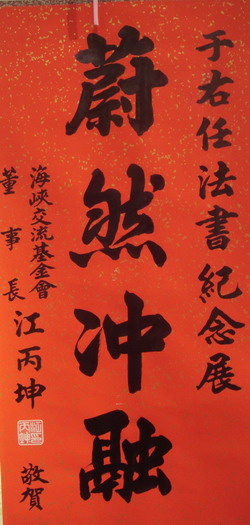 于右任法書紀念展
蔚然冲融
海峽交流基金會
董事長江丙坤敬賀